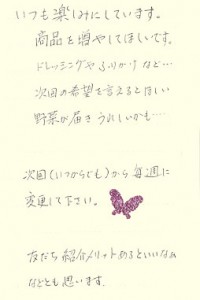 いつも楽しみにしています。
商品を増やしてほしいです。
ドレッシングやふりかけなど…
次回の希望を言えるとほしい
野菜が届きうれしいかも…
次回(いつからでも)から毎週に
変更して下さい。
友だち紹介メリットあるといいなぁ
などとも思います。